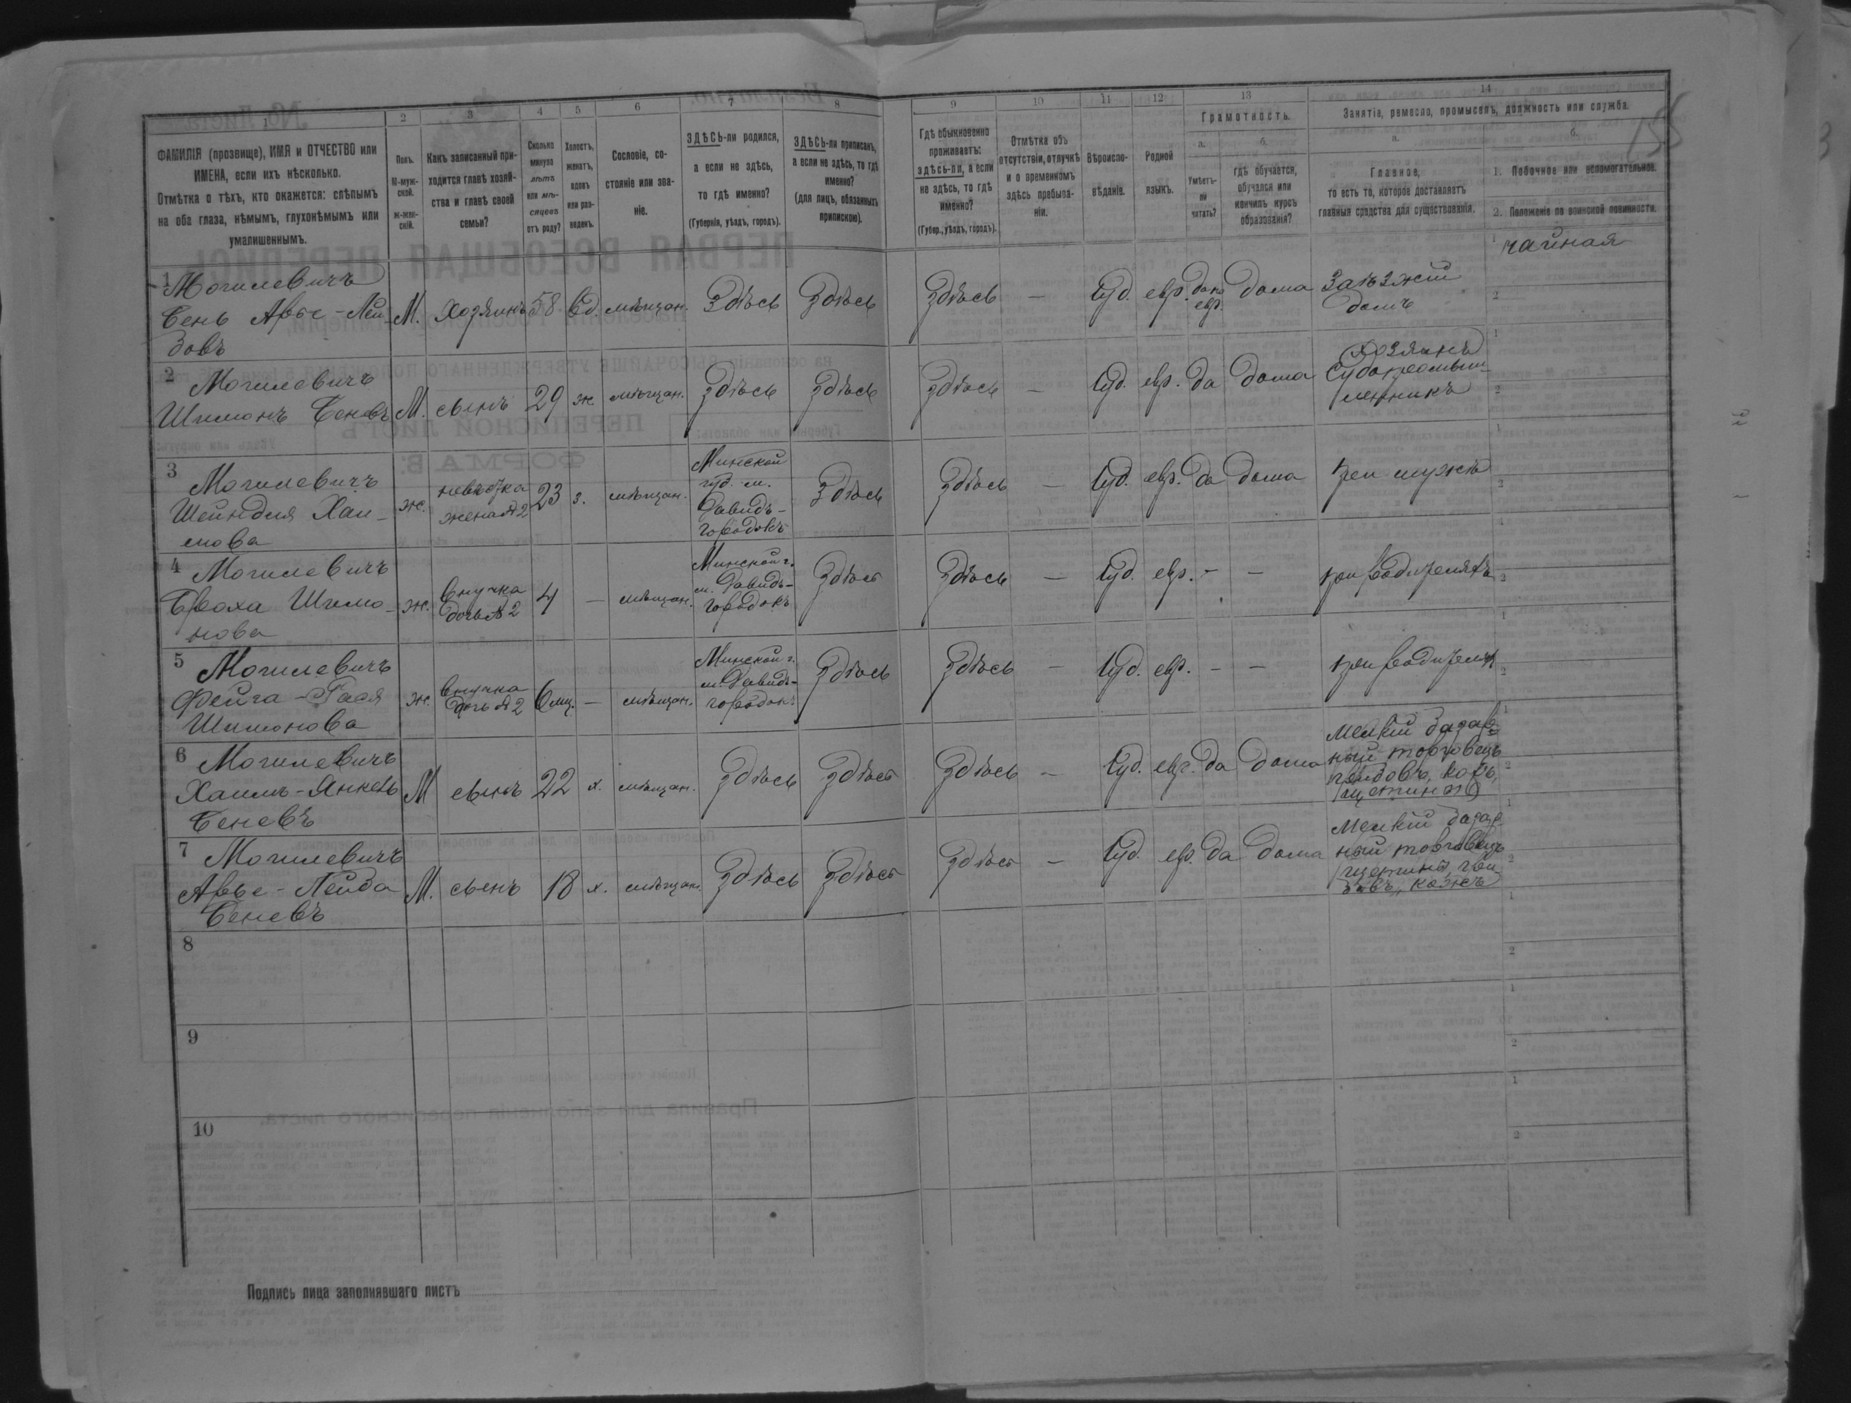 1
2
3
4
5
6
7
8
9
10
11
12
13
14
ФАМИЛІЯ (прозвище), ИМЯ и ОТЧЕСТВО или
ИМЕНА, если ихъ нѣсколько.
Отмѣтка о тѣхъ, кто окажется: слѣпымъ
на оба глаза, нѣмымъ, глухонѣмымъ или
умалишеннымъ.
Полъ.
М-муж-
ской.
Ж-жен-
скій.
Какъ записанный при-
ходится главѣ хозяй-
ства и главѣ своей
семьи?
Сколько
минуло
лѣтъ
или мѣ-
сяцевъ
отъ роду?
Холостъ,
женатъ,
вдовъ
или раз-
веденъ.
Сословіе, со-
стояніе или зва-
ніе.
ЗДѢСЬ-ли родился,
а если не здѣсь,
то гдѣ именно?
(Губернія, уѣздъ, городъ).
ЗДѢСЬ-ли приписанъ,
а если не здѣсь, то гдѣ
именно?
(для лицъ, обязанныхъ
припискою).
Гдѣ обыкновенно
проживаетъ:
здѣсь-ли, а если
не здѣсь, то гдѣ
именно?
(Губер., уѣздъ, городъ).
Отмѣтка объ
отсутствіи, отлучкѣ
и о временномъ
здѣсь пребыва-
ніи.
Вѣроиспо-
вѣданіе.
Родной
языкъ.
Грамотность.
а.
Умѣетъ-
ли
читать?
б.
гдѣ обучается,
обучался или
кончилъ курсъ
образованія?
Занятіе, ремесло, промыселъ, должность или служба.
а.
Главное,
то есть то, которое доставляетъ
главныя средства для существованія.
б.
1. Побочное или вспомогательное.
2. Положеніе по воинской повинности.
1 Могилевичъ
Бень Арье-Лей-
зовъ
М. хозяинъ 58 вд. мѣщан. Здѣсь Здѣсь Здѣсь — Іуд. евр. да
евр. дома Заѣзжій
домъ
чайная
2 Могилевичъ
Шимонъ Беневъ М. сынъ 29 ж. мѣщан. Здѣсь Здѣсь Здѣсь — Іуд. евр. да дома хозяинъ
3 Могилевичъ
Шейндля Хаи-
мова
ж. невѣстка
жена №2 23 з. мѣщан. Минской
губ. м.
Давидъ-
городокъ Здѣсь Здѣсь — Іуд. евр. да дома при мужѣ
4 Могилевичъ
Броха Шимо-
нова
ж. внучка
дочь №2 4 — мѣщан. Минской г.
м. Давидъ-
городокъ Здѣсь Здѣсь — Іуд. евр. — — при родителяхъ
5 Могилевичъ
Фейга-Гася
Шимонова
ж. внучка
дочь №2 6 мц. — мѣщан. Минской г.
м. Давидъ-
городок. Здѣсь Здѣсь — Іуд. евр. — — при родителях
6 Могилевичъ
Хаимъ-Янкель
Беневъ
М сынъ 22 х. мѣщан. Здѣсь Здѣсь Здѣсь — Іуд. евр. да дома Мелкій базар-
ный торговецъ
7 Могилевичъ
Арье-Лейба
Беневъ
М. сынъ 18 х. мѣщан. Здѣсь Здѣсь Здѣсь — Іуд. евр. да дома Мелкій базар-
ный торговецъ
8
9
10
Подпись лица заполнявшаго листъ